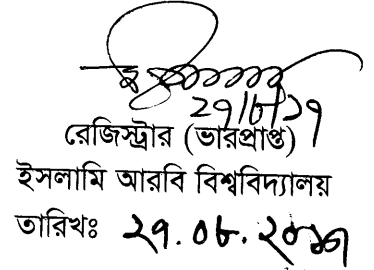 ২৭/৮/১৭
রেজিস্ট্রার (ভারপ্রাপ্ত)
ইসলামি আরবি বিশ্ববিদ্যালয়
তারিখঃ ২৭.০৮.২০১৭